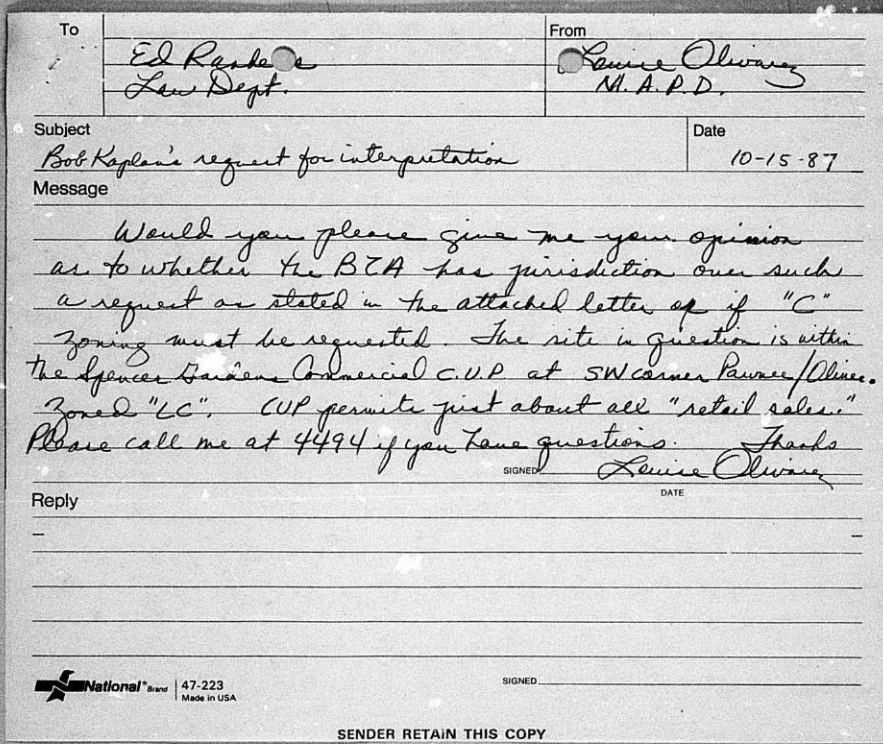 To
From
Ed
Louise Olivarez
Law Dept.
M.A.P.D.
Subject
Date
Bob Kaplan's request for interpretation
10-15-87
Message
Would you please give me your opinion
as to whether the BZA has jurisdiction over such
a request as stated in the attached letter or if "C"
zoning must be requested. The site in question is within
the Spencer Gardens Commercial C.U.P at SW corner Pawnee/Oliver.
Zoned "LC". CUP permits just about all "retail sales."
Please call me at 4494 if you have questions. Thanks
SIGNED Louise Olivarez
DATE
Reply
National® Brand 47-223
Made in USA
SIGNED
SENDER RETAIN THIS COPY